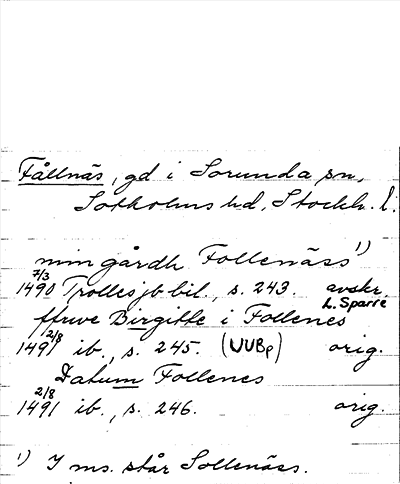 Fållnäs, gd i Sorunda sn,
Sotholms hd, Stockh. l.
min gårdh Follenäss 1)
7/3
1490 Trolles jb bil., s. 243. avskr.
L. Sparre
ffrwe Birgitte i Follenes
2/8
1491 ib., s. 245. (UUBp) orig.
Datum Follenes
2/8
1491 ib., s. 246. orig.
1) I ms. står Sollenäss.